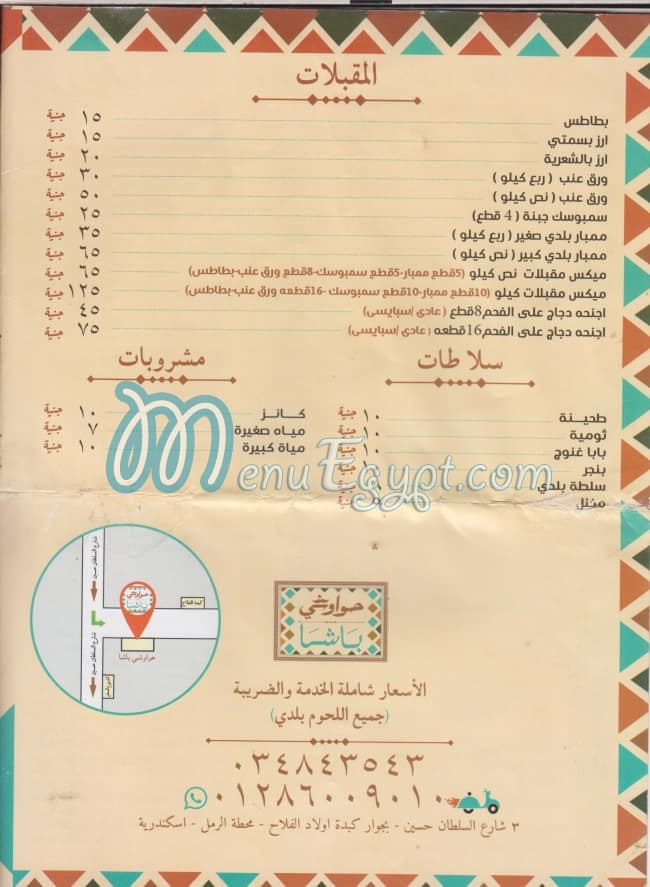 المقبلات
بطاطس ١٥ جنية
ارز بسمتي ١٥ جنية
ارز بالشعرية ٢٠ جنية
ورق عنب ( ربع كيلو ) ٣٠ جنية
ورق عنب ( نص كيلو ) ٥٠ جنية
سمبوسك جبنة ( 4 قطع) ٢٥ جنية
ممبار بلدي صغير ( ربع كيلو ) ٣٥ جنية
ممبار بلدي كبير ( نص كيلو ) ٦٥ جنية
ميكس مقبلات نص كيلو (5قطع ممبار-5قطع سمبوسك-8قطع ورق عنب-بطاطس) ٦٥ جنية
ميكس مقبلات كيلو (10قطع ممبار-10قطع سمبوسك -16قطعه ورق عنب-بطاطس) ١٢٥ جنية
اجنحه دجاج على الفحم8قطع ( عادي /سبايسي) ٤٥ جنية
اجنحه دجاج على الفحم16قطعه ( عادي /سبايسي) ٧٥ جنية
سلاطات
طحينة ١٠ جنية
ثومية ١٠ جنية
بابا غنوج ١٠ جنية
بنجر
سلطة بلدي
مخلل جنية
مشروبات
كانز ١٠ جنية
مياه صغيرة ٧ جنية
مياة كبيرة ١٠ جنية
MenuEgypt.com
شارع السلطان حسين
كبدة الفلاح
حواوشي باشا
حواوشي باشا
شارع السلطان حسين
حواوشي
باشا
الأسعار شاملة الخدمة والضريبة
(جميع اللحوم بلدي)
٠٣٤٨٤٣٥٤٣
٠١٢٨٦٠٠٩٠١٠
٣ شارع السلطان حسين - بجوار كبدة اولاد الفلاح - محطة الرمل - اسكندرية